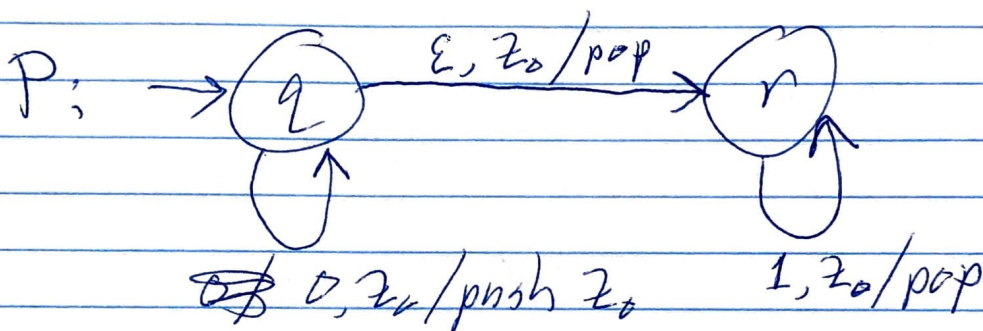 P: q ε, Z₀/pop r
0, Z₀/push Z₀ 1, Z₀/pop